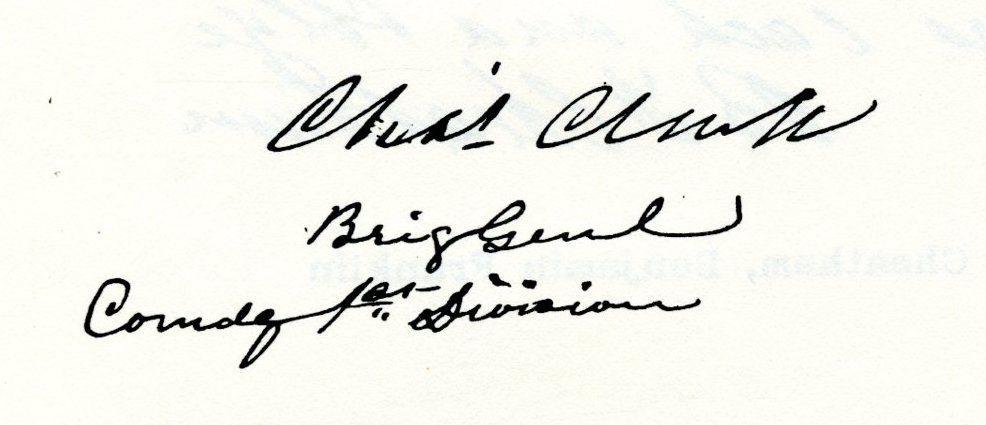 Chas. Clark
Brig Genl
Comdg 1st Division
Cheatham, Benjamin Franklin